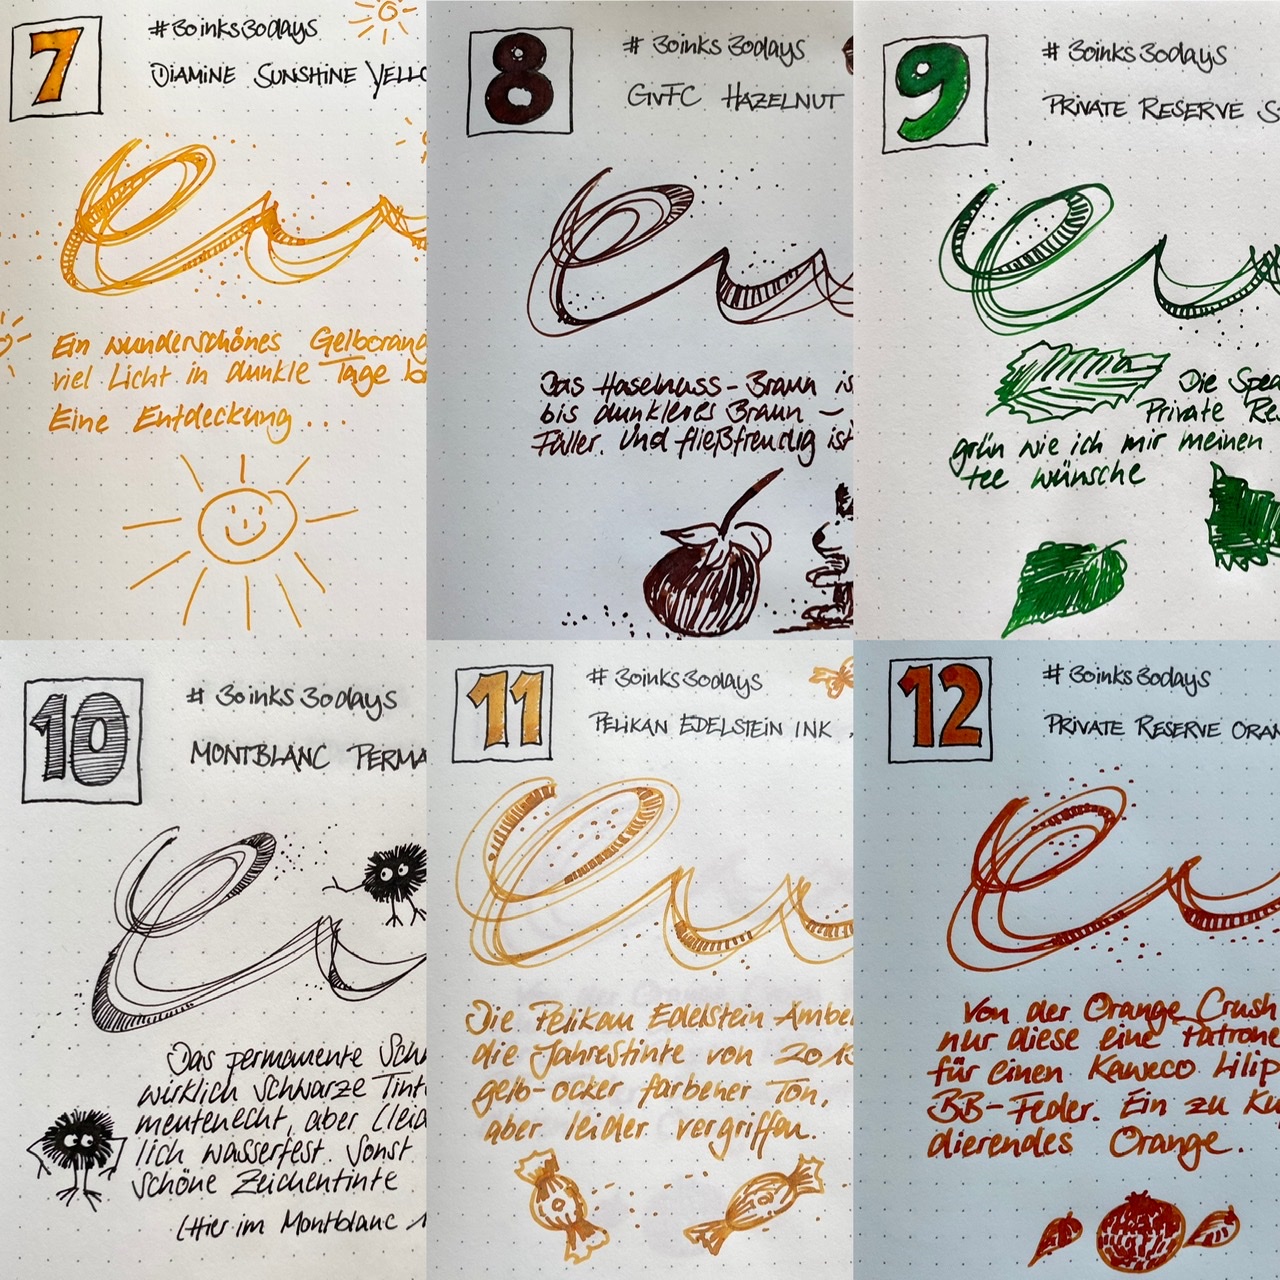 7
#30inks30days
DIAMINE SUNSHINE YELLO
Ein wunderschönes Gelborang
viel Licht in dunkle Tage
Eine Entdeckung ...
8
#30inks30days
GVFC HAZELNUT
Das Haselnuss-Braun is
bis dunkleres Braun –
Füller. Und fließfreudig ist
9
#30inks30days
PRIVATE RESERVE S
Die Spea
Private Res
grün wie ich mir meinen
tee wünsche
10
#30inks30days
MONTBLANC PERMA
Das permanente Schw
wirklich schwarze Tint
mentenecht, aber (leid
lich wasserfest. Sonst
schöne Zeichentinte
(Hier im Montblanc 1
11
#30inks30days
PELIKAN EDELSTEIN INK
Die Pelikan Edelstein Ambe
die Jahrestinte von 2013
gelb-ocker farbener Ton,
aber leider vergriffen.
12
#30inks30days
PRIVATE RESERVE ORAN
Von der Orange Crush
nur diese eine Patrone
für einen Kaweco Lilip
BB-Feder. Ein zu Ku
dierendes Orange.